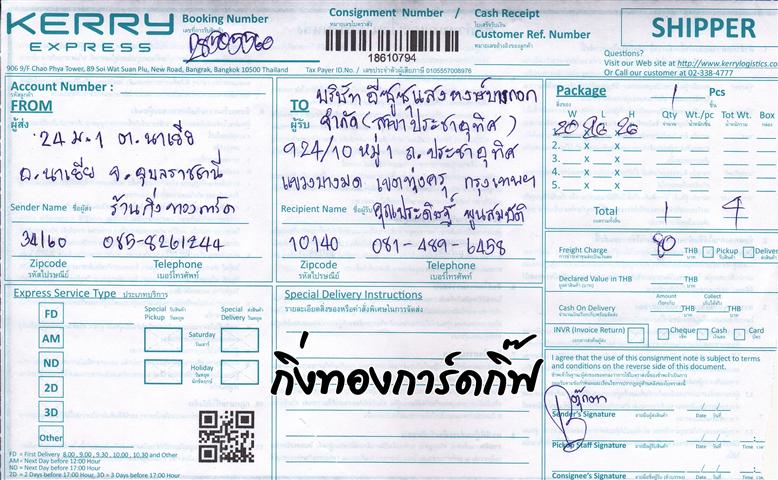 KERRY
EXPRESS
Booking Number
Consignment Number /
Cash Receipt
Customer Ref. Number
18610794
SHIPPER
Questions?
Visit our Web site at http://www.kerrylogistics.com
Or Call our customer at 02-338-4777
906 9/F Chao Phya Tower, 89 Soi Wat Suan Plu, New Road, Bangrak, Bangkok 10500 Thailand
Tax Payer ID.No. / เลขประจำตัวผู้เสียภาษี 0105557008976
Account Number :
FROM
ผู้ส่ง
24 ม.1 ต.นาเยีย
อ.นาเยีย จ.อุบลราชธานี
Sender Name ชื่อผู้ส่ง ร้านกิ่งทองการ์ด
34160 085-8261244
Zipcode Telephone
รหัสไปรษณีย์ เบอร์โทรศัพท์
TO
ผู้รับ
บริษัท อีซูซุแสงหงษ์บางกอก
จำกัด (สาขาประชาอุทิศ)
924/10 หมู่ 1 ถ.ประชาอุทิศ
แขวงบางมด เขตทุ่งครุ กรุงเทพฯ
Recipient Name ชื่อผู้รับ คุณประดิษฐ์ พูนสมบัติ
10140 081-489-6458
Zipcode Telephone
รหัสไปรษณีย์ เบอร์โทรศัพท์
Package 1 Pcs
W L H Qty Wt./pc Tot Wt. Box
2. x x
3. x x
4. x x
5. x x
Total 1 4
Freight Charge 80 THB Pickup Delivery
Declared Value in THB THB
Amount Collect
Cash On Delivery THB THB
INVR (Invoice Return) Cheque Cash Card
I agree that the use of this consignment note is subject to terms
and conditions on the reverse side of this document.
Sender's Signature
Pickup Staff Signature
Consignee's Signature
Express Service Type ประเภทบริการ
Special Pickup
Special Delivery
FD
AM
ND
2D
3D
Other
Saturday
วันเสาร์
Holiday
Special Delivery Instructions
รายละเอียดสิ่งของหรือคำสั่งพิเศษในการจัดส่ง
กิ่งทองการ์ดกิ๊ฟ
FD = First Delivery 8.00 , 9.00 , 9.30 , 10.00 , 10.30 and Other
AM = Next Day before 12:00 Hour
ND = Next Day before 17:00 Hour
2D = 2 Days before 17:00 Hour, 3D = 3 Days before 17:00 Hour